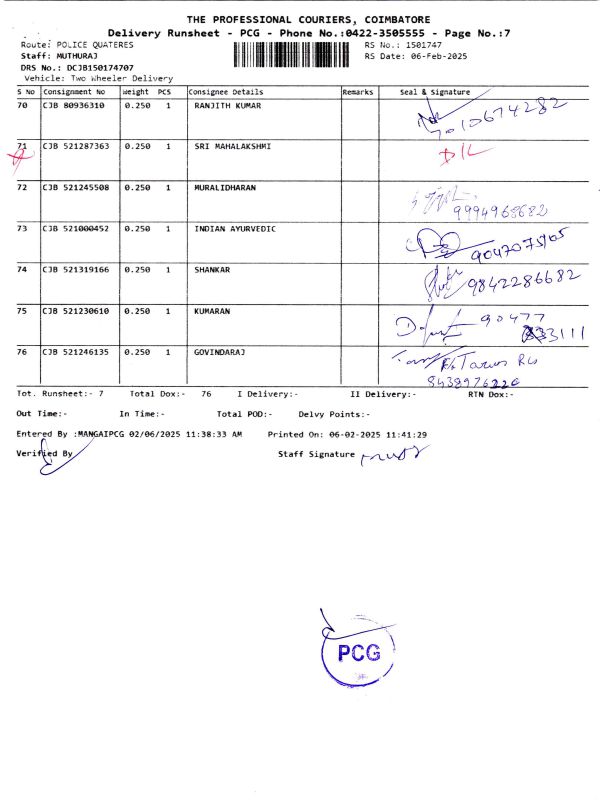 THE PROFESSIONAL COURIERS, COIMBATORE
Delivery Runsheet - PCG - Phone No.:0422-3505555 - Page No.:7
Route: POLICE QUATERES RS No.: 1501747
Staff: MUTHURAJ RS Date: 06-Feb-2025
DRS No.: DCJB150174707
Vehicle: Two Wheeler Delivery
S No Consignment No Weight PCS Consignee Details Remarks Seal & Signature
70 CJB 80936310 0.250 1 RANJITH KUMAR 7010674282
71 CJB 521287363 0.250 1 SRI MAHALAKSHMI D/L
72 CJB 521245508 0.250 1 MURALIDHARAN 9994968682
73 CJB 521000452 0.250 1 INDIAN AYURVEDIC
74 CJB 521319166 0.250 1 SHANKAR 9842286682
75 CJB 521230610 0.250 1 KUMARAN 90477
33111
76 CJB 521246135 0.250 1 GOVINDARAJ
8438976220
Tot. Runsheet:- 7 Total Dox:- 76 I Delivery:- II Delivery:- RTN Dox:-
Out Time:- In Time:- Total POD:- Delvy Points:-
Entered By :MANGAIPCG 02/06/2025 11:38:33 AM Printed On: 06-02-2025 11:41:29
Verified By Staff Signature
PCG